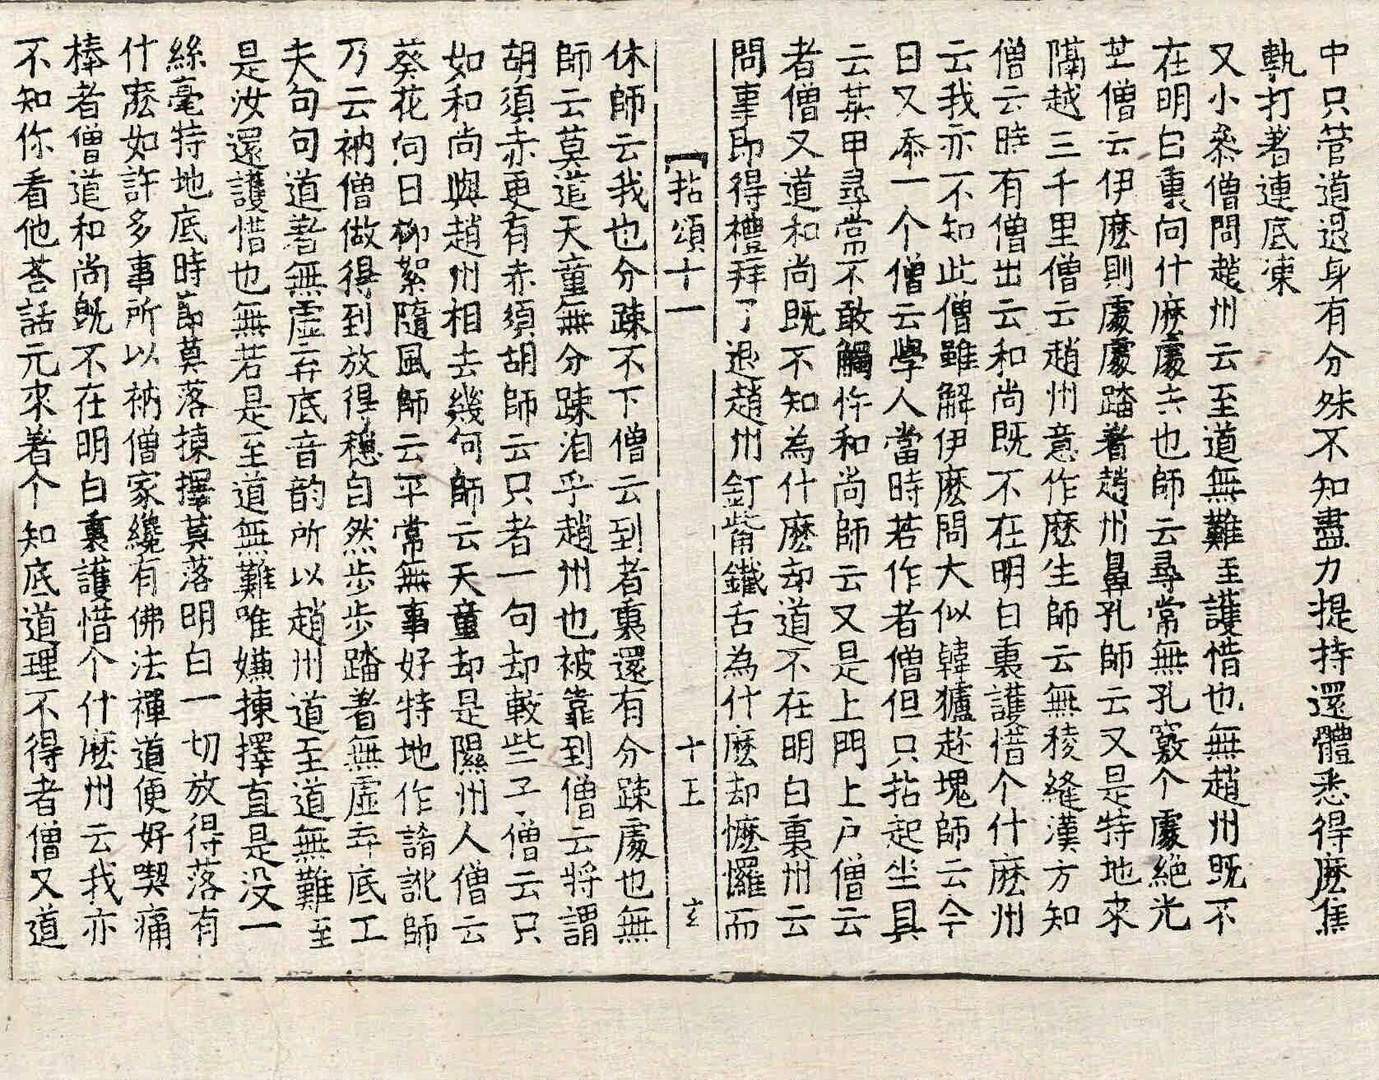 中只管道退身有分殊不知盡力提持還體悉得麽焦
執打著連底凍
又小叅僧問趙州云至道無難至護惜也無趙州既不
在明白裏向什麽處去也師云尋常無孔竅个處絶光
芒僧云伊麽則處處踏着趙州鼻孔師云又是特地來
隔越三千里僧云趙州意作麽生師云無稜縫漢方知
僧云時有僧出云和尚既不在明白裏護惜个什麽州
云我亦不知此僧雖解伊麽問大似韓獹趂塊師云今
日又添一个僧云學人當時若作者僧但只拈起坐具
云某甲尋常不敢觸忤和尚師云又是上門上户僧云
者僧又道和尚既不知為什麽却道不在明白裏州云
問事即得禮拜了退趙州釘觜鐵舌為什麽却懡㦬而
【拈頌十一 十五 玄
休師云我也分疎不下僧云到者裏還有分疎處也無
師云莫道天童無分疎洎乎趙州也被靠到僧云將謂
胡須赤更有赤須胡師云只者一句却較些子僧云只
如和尚與趙州相去幾何師云天童却是隰州人僧云
葵花向日柳絮隨風師云平常無事好特地作誵訛師
乃云衲僧做得到放得穩自然步步踏著無虛弃底工
夫句句道著無虛弃底音韵所以趙州道至道無難至
是汝還護惜也無若是至道無難唯嫌揀擇直是没一
絲毫特地底時節莫落揀擇莫落明白一切放得落有
什麽如許多事所以衲僧家纔有佛法禪道便好喫痛
棒者僧道和尚旣不在明白裏護惜个什麽州云我亦
不知你看他荅話元來著个知底道理不得者僧又道